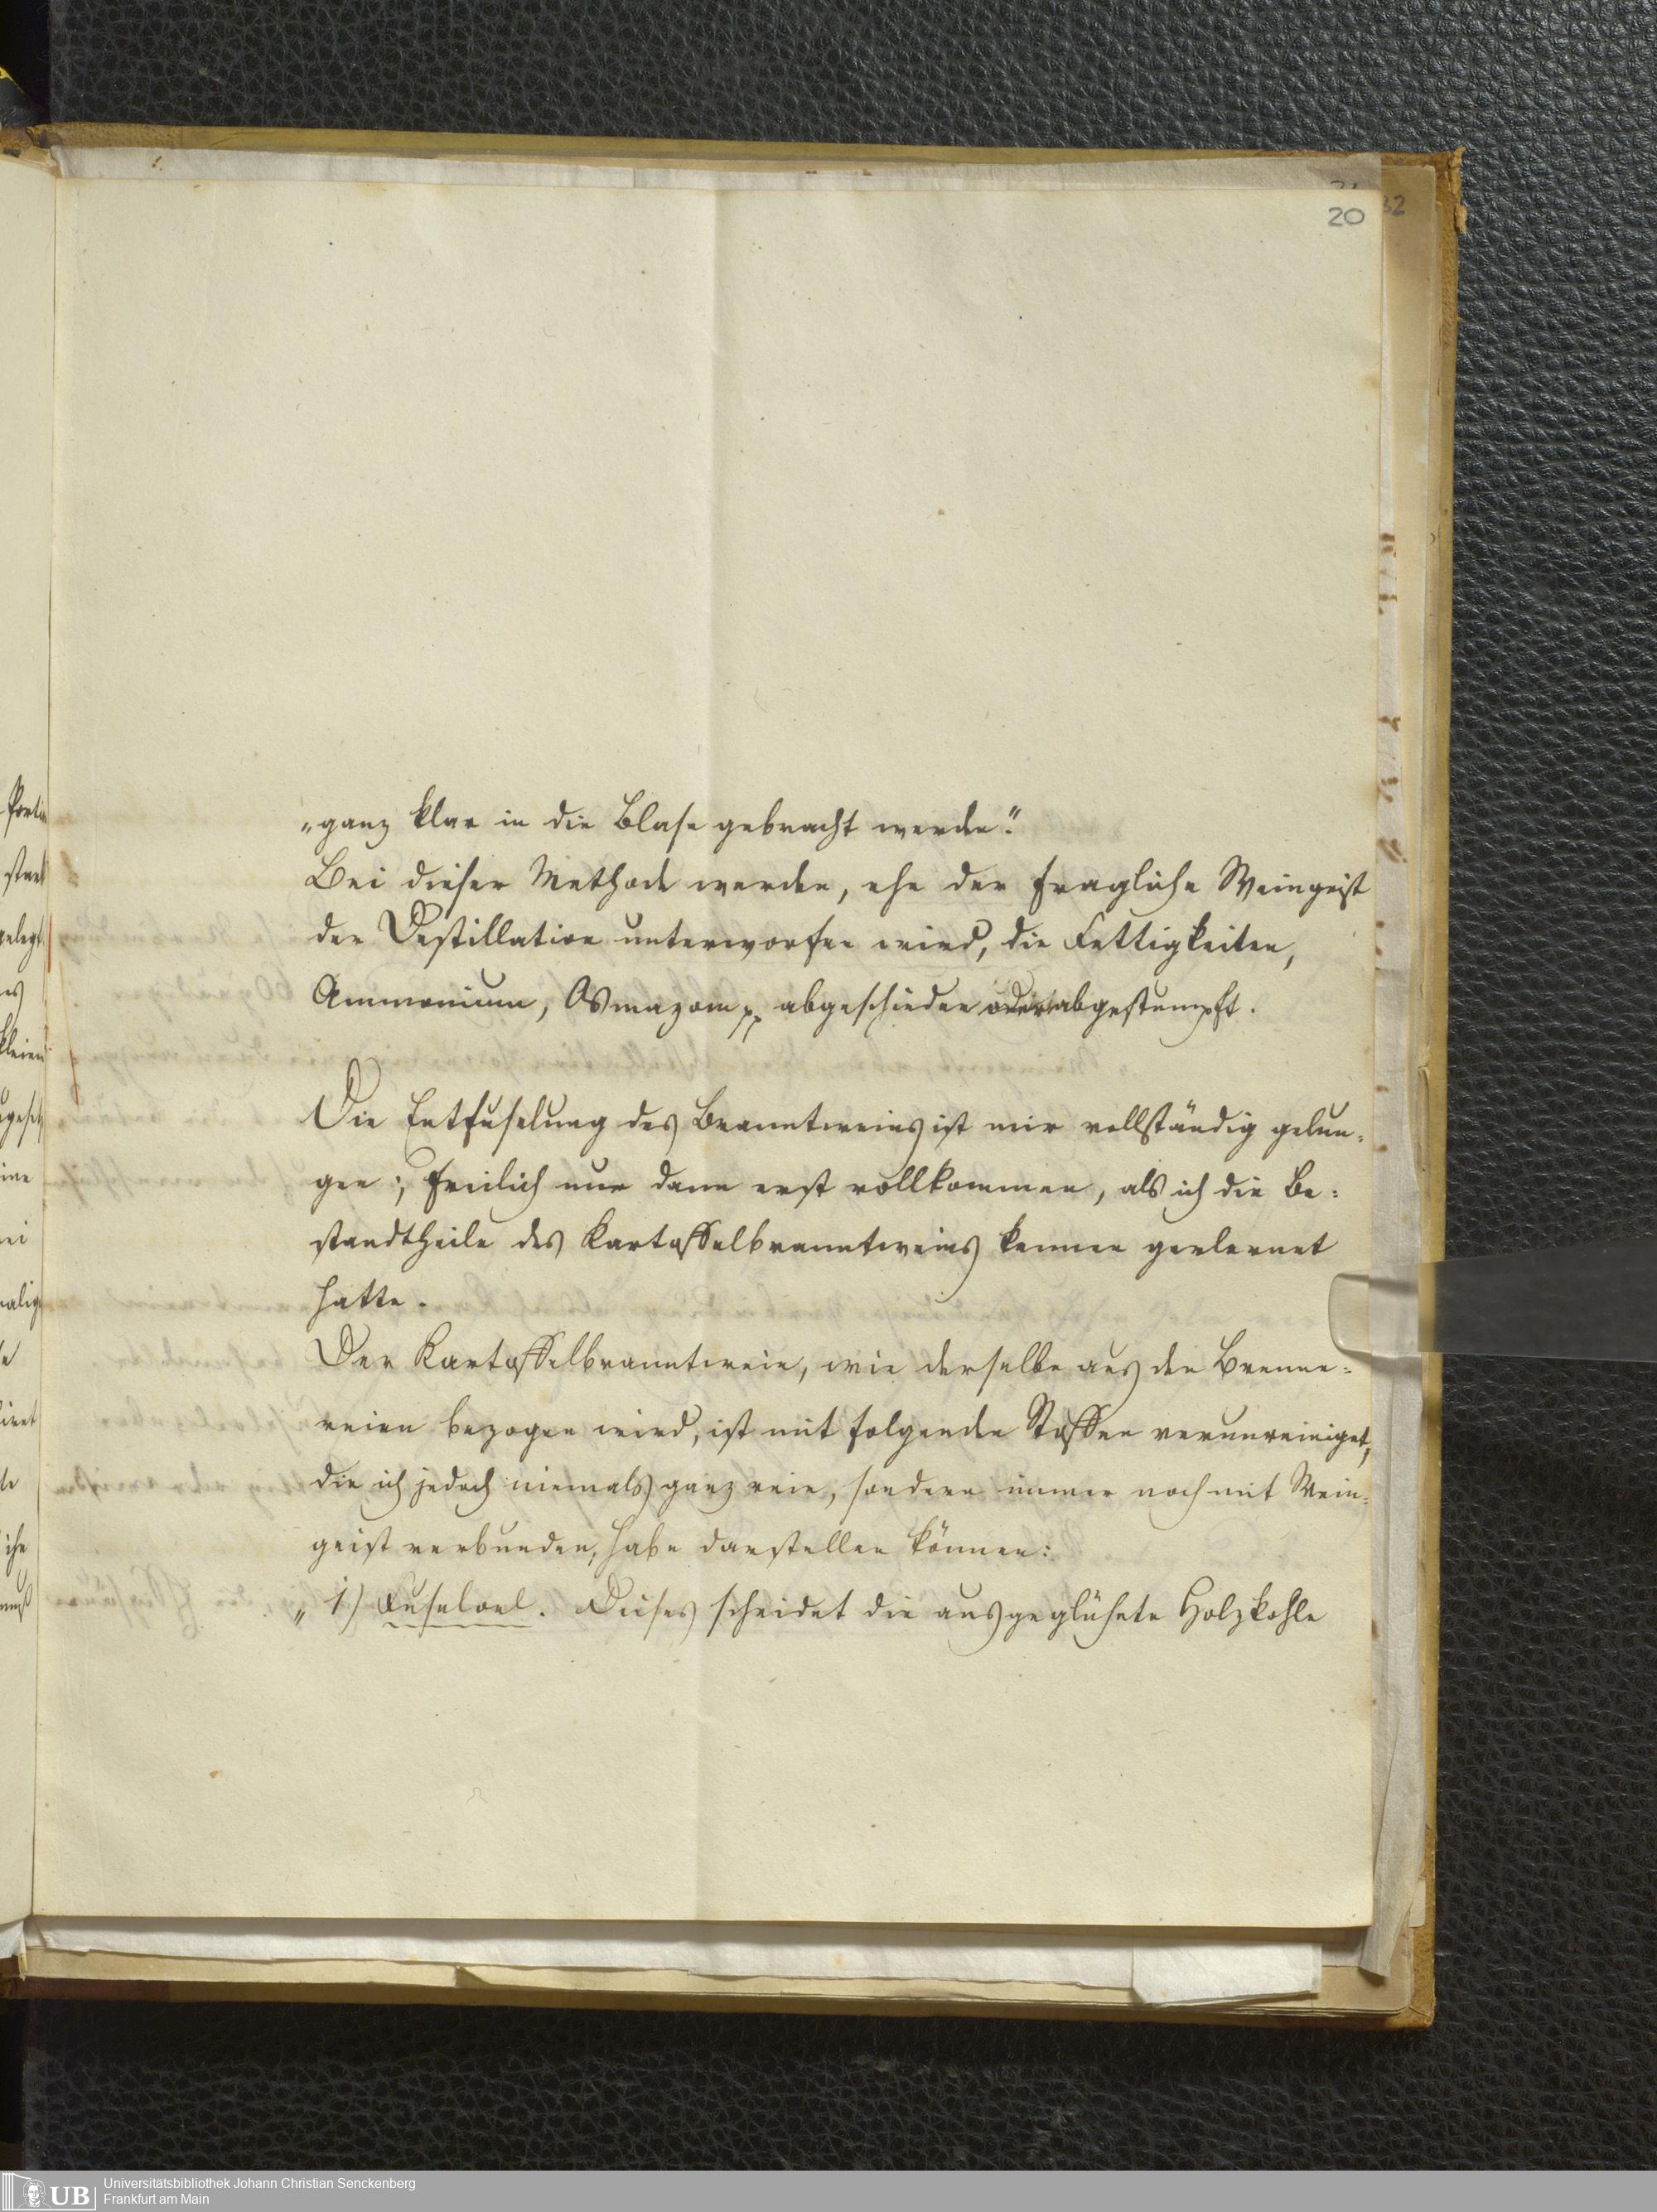 20
32
„ganz klar in die Blase gebracht werde."
Bei dieser Methode werden, ehe der fragliche Weingeist
der Destillation unterworfen wird, die Fettigkeiten,
Ammonium, Osmazom pp abgeschieden oder abgestumpft.
Die Entfuselung des Branntweins ist mir vollständig gelun-
gen; freilich nur dann erst vollkommen, als ich die Be-
standtheile des Kartoffelbranntweins kennen gelernet
hatte.
Der Kartoffelbranntwein, wie derselbe aus den Brenne-
reien bezogen wird, ist mit folgenden Stoffen verunreiniget,
die ich jedoch niemals ganz rein, sondern immer noch mit Wein-
geist verbunden, habe darstellen können:
„ 1) Fuseloel. Dieses scheidet die ausgeglühete Holzkohle
UB
Universitätsbibliothek Johann Christian Senckenberg
Frankfurt am Main